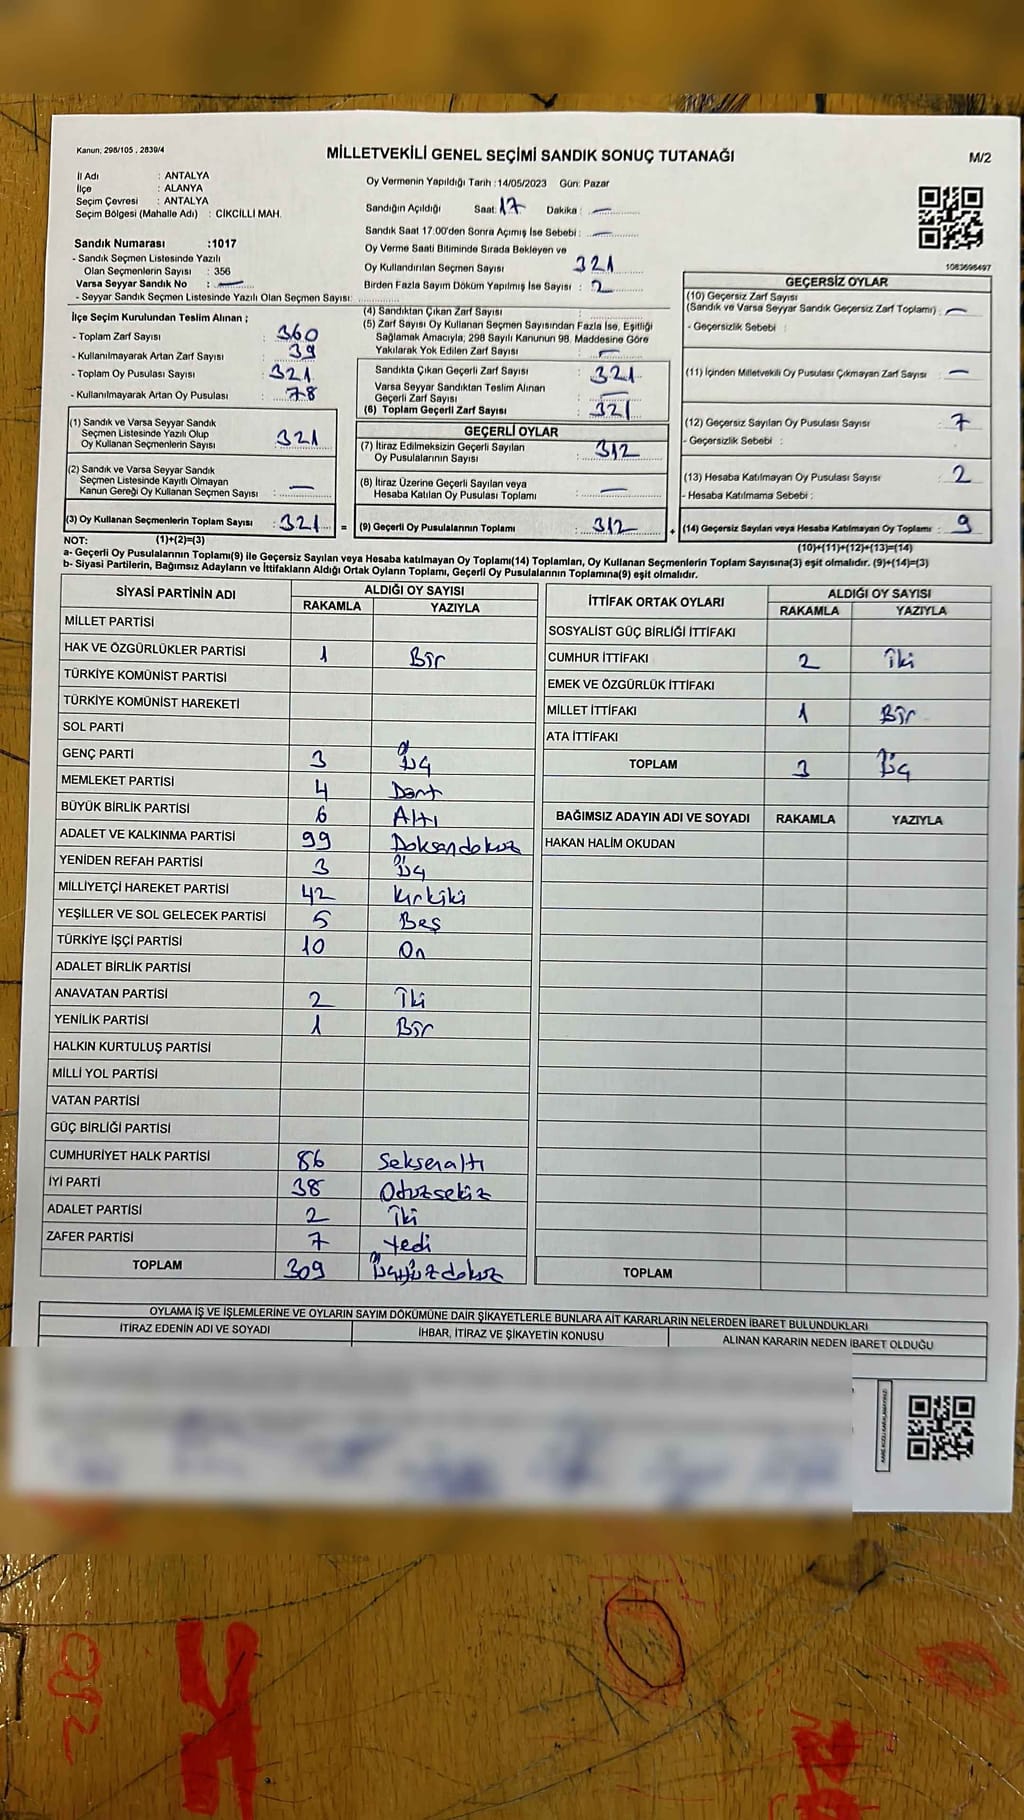 Kanun; 298/105 , 2839/4
MİLLETVEKİLİ GENEL SEÇİMİ SANDIK SONUÇ TUTANAĞI
M/2
İl Adı : ANTALYA
İlçe : ALANYA
Seçim Çevresi : ANTALYA
Seçim Bölgesi (Mahalle Adı) : CİKCİLLİ MAH.
Oy Vermenin Yapıldığı Tarih :14/05/2023 Gün: Pazar
Sandığın Açıldığı Saat: 17 Dakika : —
Sandık Saat 17:00'den Sonra Açımış İse Sebebi : —
Oy Verme Saati Bitiminde Sırada Bekleyen ve
Oy Kullandırılan Seçmen Sayısı 321
Birden Fazla Sayım Döküm Yapılmış İse Sayısı : 2
Sandık Numarası :1017
- Sandık Seçmen Listesinde Yazılı
Olan Seçmenlerin Sayısı : 356
Varsa Seyyar Sandık No : —
- Seyyar Sandık Seçmen Listesinde Yazılı Olan Seçmen Sayısı:
1083696497
İlçe Seçim Kurulundan Teslim Alınan ;
- Toplam Zarf Sayısı : 360
- Kullanılmayarak Artan Zarf Sayısı : 39
- Toplam Oy Pusulası Sayısı : 321
- Kullanılmayarak Artan Oy Pusulası : 78
(1) Sandık ve Varsa Seyyar Sandık
Seçmen Listesinde Yazılı Olup
Oy Kullanan Seçmenlerin Sayısı : 321
(2) Sandık ve Varsa Seyyar Sandık
Seçmen Listesinde Kayıtlı Olmayan
Kanun Gereği Oy Kullanan Seçmen Sayısı : —
(3) Oy Kullanan Seçmenlerin Toplam Sayısı : 321 =
(4) Sandıktan Çıkan Zarf Sayısı :
(5) Zarf Sayısı Oy Kullanan Seçmen Sayısından Fazla İse, Eşitliği
Sağlamak Amacıyla; 298 Sayılı Kanunun 98. Maddesine Göre
Yakılarak Yok Edilen Zarf Sayısı : —
Sandıkta Çıkan Geçerli Zarf Sayısı : 321
Varsa Seyyar Sandıktan Teslim Alınan
Geçerli Zarf Sayısı : —
(6) Toplam Geçerli Zarf Sayısı : 321
GEÇERLİ OYLAR
(7) İtiraz Edilmeksizin Geçerli Sayılan
Oy Pusulalarının Sayısı : 312
(8) İtiraz Üzerine Geçerli Sayılan veya
Hesaba Katılan Oy Pusulası Toplamı : —
(9) Geçerli Oy Pusulalarının Toplamı : 312 +
GEÇERSİZ OYLAR
(10) Geçersiz Zarf Sayısı
(Sandık ve Varsa Seyyar Sandık Geçersiz Zarf Toplamı) : —
- Geçersizlik Sebebi :
(11) İçinden Milletvekili Oy Pusulası Çıkmayan Zarf Sayısı : —
(12) Geçersiz Sayılan Oy Pusulası Sayısı : 7
- Geçersizlik Sebebi :
(13) Hesaba Katılmayan Oy Pusulası Sayısı : 2
- Hesaba Katılmama Sebebi :
(14) Geçersiz Sayılan veya Hesaba Katılmayan Oy Toplamı : 9
NOT: (1)+(2)=(3)
(10)+(11)+(12)+(13)=(14)
a- Geçerli Oy Pusulalarının Toplamı(9) ile Geçersiz Sayılan veya Hesaba katılmayan Oy Toplamı(14) Toplamları, Oy Kullanan Seçmenlerin Toplam Sayısına(3) eşit olmalıdır. (9)+(14)=(3)
b- Siyasi Partilerin, Bağımsız Adayların ve İttifakların Aldığı Ortak Oyların Toplamı, Geçerli Oy Pusulalarının Toplamına(9) eşit olmalıdır.
SİYASİ PARTİNİN ADI ALDIĞI OY SAYISI
RAKAMLA YAZIYLA
MİLLET PARTİSİ
HAK VE ÖZGÜRLÜKLER PARTİSİ 1 Bir
TÜRKİYE KOMÜNİST PARTİSİ
TÜRKİYE KOMÜNİST HAREKETİ
SOL PARTİ
GENÇ PARTİ 3 Üç
MEMLEKET PARTİSİ 4 Dört
BÜYÜK BİRLİK PARTİSİ 6 Altı
ADALET VE KALKINMA PARTİSİ 99 Doksandokuz
YENİDEN REFAH PARTİSİ 3 Üç
MİLLİYETÇİ HAREKET PARTİSİ 42 Kırkiki
YEŞİLLER VE SOL GELECEK PARTİSİ 5 Beş
TÜRKİYE İŞÇİ PARTİSİ 10 On
ADALET BİRLİK PARTİSİ
ANAVATAN PARTİSİ 2 İki
YENİLİK PARTİSİ 1 Bir
HALKIN KURTULUŞ PARTİSİ
MİLLİ YOL PARTİSİ
VATAN PARTİSİ
GÜÇ BİRLİĞİ PARTİSİ
CUMHURİYET HALK PARTİSİ 86 Seksenaltı
İYİ PARTİ 38 Otuzsekiz
ADALET PARTİSİ 2 İki
ZAFER PARTİSİ 7 Yedi
TOPLAM 309 Üçyüzdokuz
İTTİFAK ORTAK OYLARI ALDIĞI OY SAYISI
RAKAMLA YAZIYLA
SOSYALİST GÜÇ BİRLİĞİ İTTİFAKI
CUMHUR İTTİFAKI 2 İki
EMEK VE ÖZGÜRLÜK İTTİFAKI
MİLLET İTTİFAKI 1 Bir
ATA İTTİFAKI
TOPLAM 3 Üç
BAĞIMSIZ ADAYIN ADI VE SOYADI RAKAMLA YAZIYLA
HAKAN HALİM OKUDAN
TOPLAM
OYLAMA İŞ VE İŞLEMLERİNE VE OYLARIN SAYIM DÖKÜMÜNE DAİR ŞİKAYETLERLE BUNLARA AİT KARARLARIN NELERDEN İBARET BULUNDUKLARI
İTİRAZ EDENİN ADI VE SOYADI İHBAR, İTİRAZ VE ŞİKAYETİN KONUSU ALINAN KARARIN NEDEN İBARET OLDUĞU